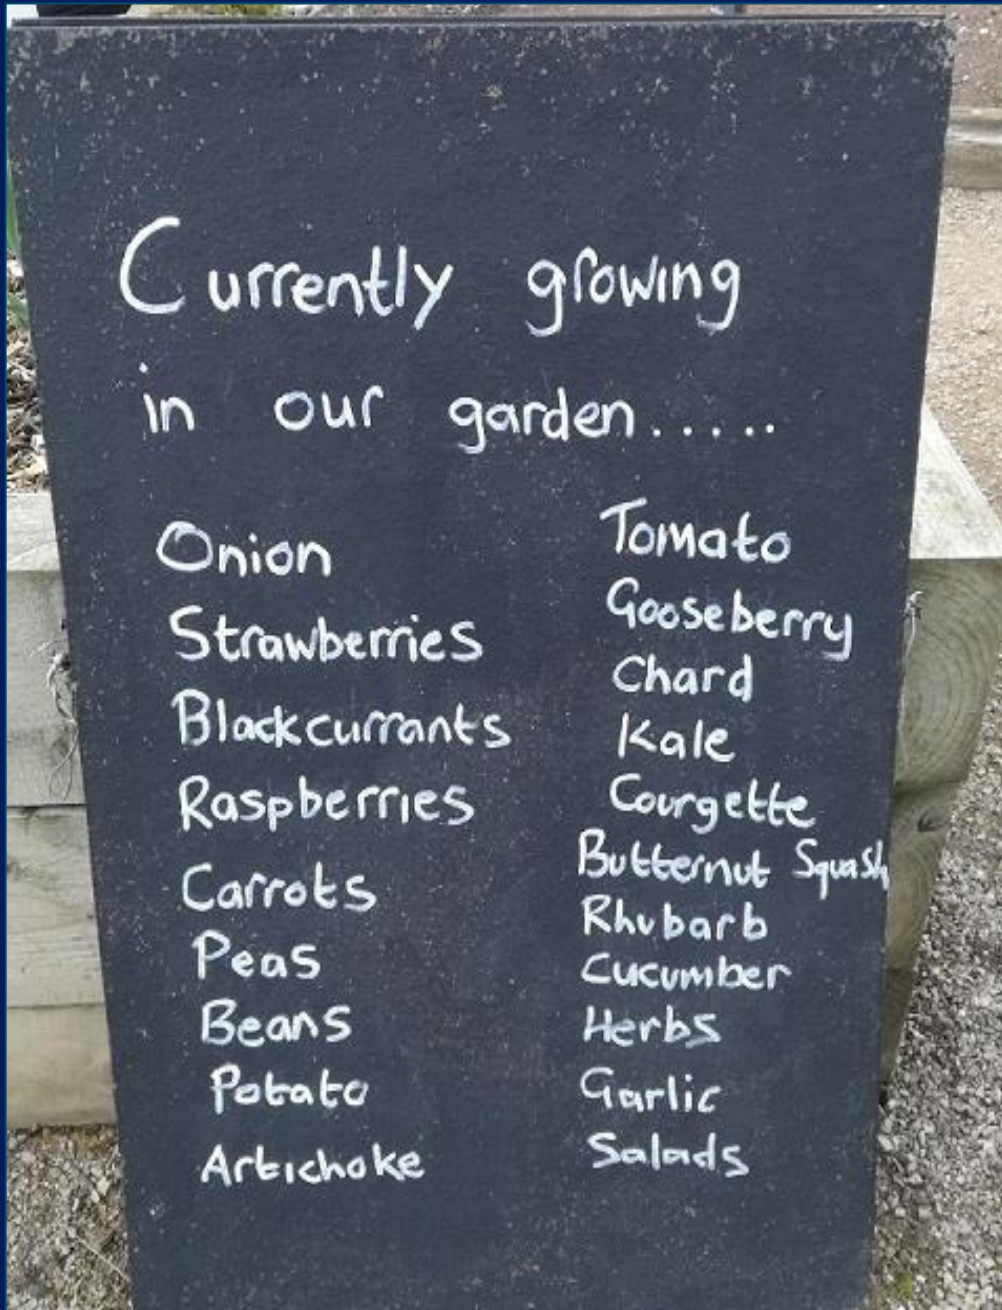 Currently growing
in our garden.....
Onion
Strawberries
Blackcurrants
Raspberries
Carrots
Peas
Beans
Potato
Artichoke
Tomato
Gooseberry
Chard
Kale
Courgette
Butternut Squash
Rhubarb
Cucumber
Herbs
Garlic
Salads